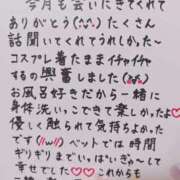 今月も会いにきてくれて
ありがとう(^^)たくさん
話聞いてくれてうれしかった〜
コスプレ着たままイチャイチャ
するの興奮しました
お風呂好きだから一緒に
身体洗いっこできて楽しかったよ♡
優しく触られて気持ちよかった
です(//ω//)ベットでは時間
ギリギリまでいっぱいぎゅ〜して
幸せでした♡♡これからも